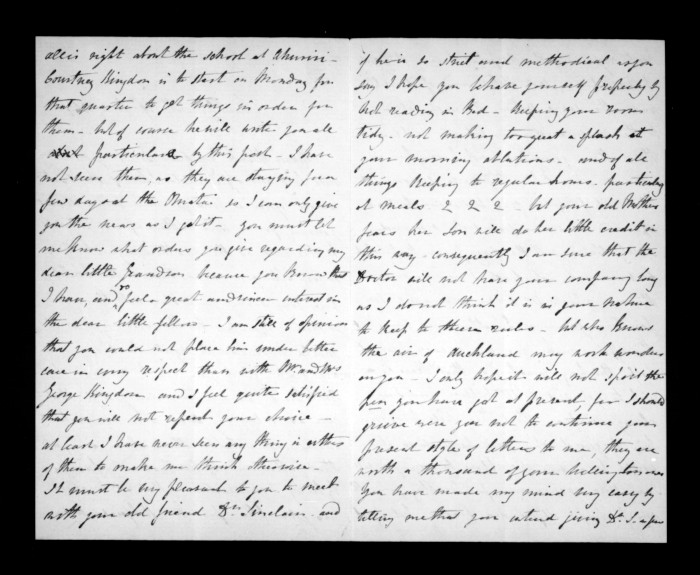 all is right about the school at Ahuriri -
Courtney Kingdon is to start on Monday for
that quarter to get things in order for
them - but of course he will write you all
particulars by this post - I have
not seen them, as they are staying for a
few days at the Omata so I can only give
you the news as I get it - you must let
me know what orders you give regarding my
dear little Grandson because you know that
I have, and do feel a great and sincere interest in
the dear little fellow - I am still of opinion
that you could not place him under better
care in every respect than with Mr and Mrs
George Kingdon and I feel quite satisfied
that you will not repent your choice -
at least I have never seen any thing in either
of them to make me think otherwise -
It must be very pleasant to you to meet
with your old friend Dr Sinclair - and
if he is so strict and methodical as you
say I hope you behave yourself properly by
not reading in Bed - Keeping your room
tidy - not making too great a splash at
your morning ablutions - and of all
things Keeping to regular hours - particularly
at meals - but your old Mother
fears her Son will do her little credit in
this way - consequently I am sure that the
Doctor will not have your company long
as I do not think it is in your nature
to keep to these rules - but who knows
the air of Auckland may work wonders
on you - I only hope it will not spoil the
pen you have got at present, for I should
grieve were you not to continue your
present style of letters to me, they are
worth a thousand of your
You have made my mind very easy by
telling me that you intend giving Dr S. a